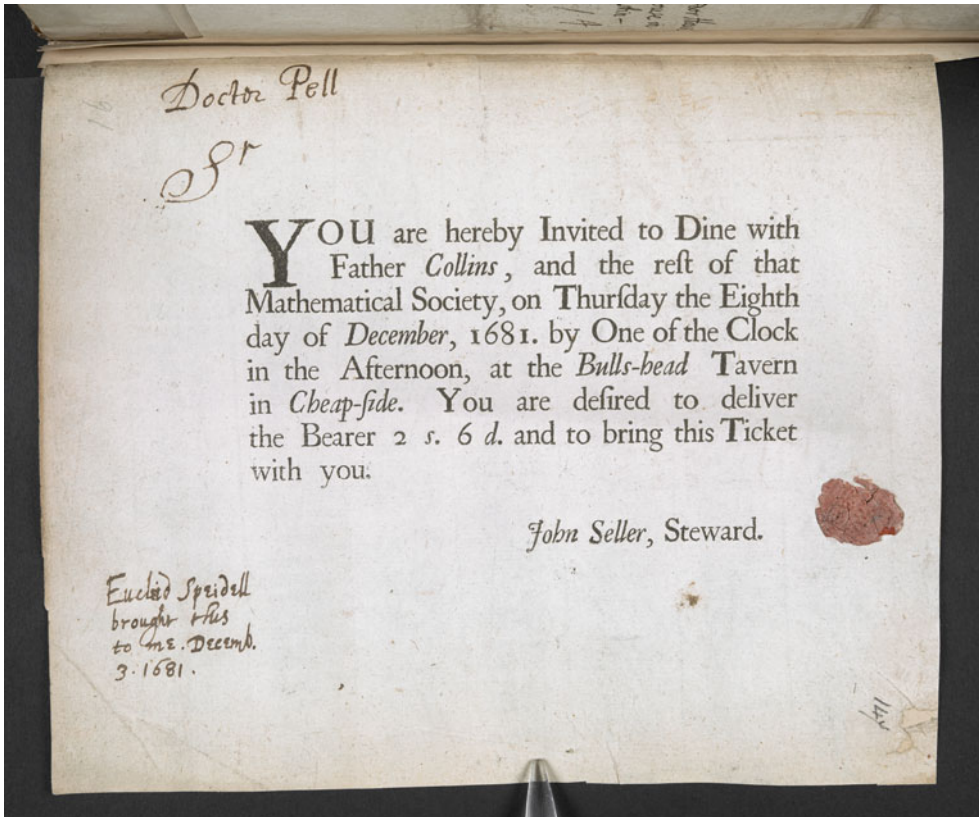 Doctor Pell
Sr
YOU are hereby Invited to Dine with
Father Collins, and the reſt of that
Mathematical Society, on Thurſday the Eighth
day of December, 1681. by One of the Clock
in the Afternoon, at the Bulls-head Tavern
in Cheap-ſide. You are deſired to deliver
the Bearer 2 s. 6 d. and to bring this Ticket
with you.
John Seller, Steward.
Euclid Speidell
brought this
to me. Decemb.
3. 1681.